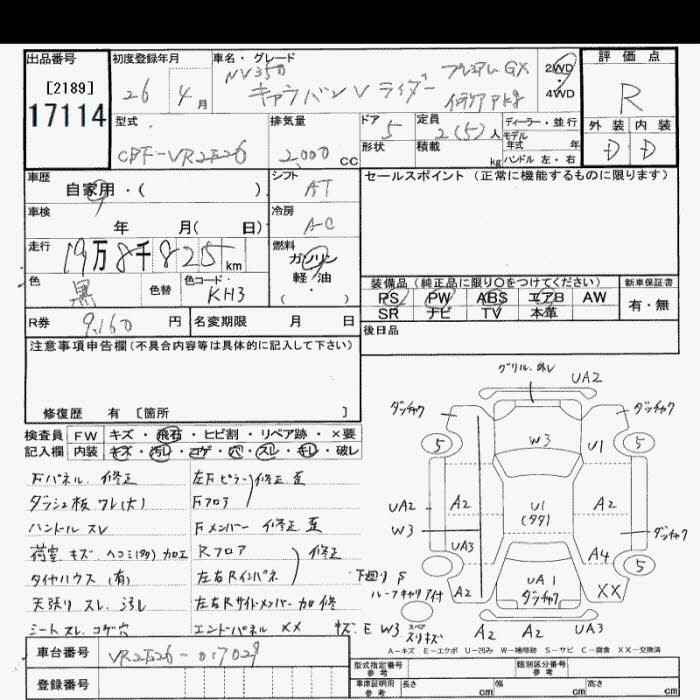 出品番号
[2189]
17114
初度登録年月
26 4月
車名・グレード
NV350
キャラバンV ライダー プレミアムGX
2WD
4WD
評価点
R
外装 内装
D D
型式
CBF-VR2E26
排気量
2,000 cc
ドア 5
形状
定員 2(5)人
積載 kg
ディーラー・並行
モデル
年式 年
ハンドル 左・右
車歴
自家用・( )
シフト
AT
車検
年 月( 日)
冷房
A-C
走行
19万8千825km
燃料
ガソリン
軽・油
( ・ )
色
黒
色替
色コード
KH3
R券 9,160 円
名変期限 月 日
セールスポイント(正常に機能するものに限ります)
装備品(純正品に限り○をつけてください)
新車保証書
PS PW ABS エアB AW
有・無
SR ナビ TV 本革
後日品
注意事項申告欄(不具合内容等は具体的に記入して下さい)
修復歴 有 [箇所 ]
検査員 FW キズ・飛石・ヒビ割・リペア跡・×要
記入欄 内装 キズ・汚レ・コゲ・穴・スレ・キレ・破レ
Fパネル 修正
左Fピラー 修正 歪
ダッシュ板 ワレ(大)
Fフロア
ハンドル スレ
Fメンバー 修正 歪
荷室 キズ ヘコミ(多) 加工
Rフロア 修正
タイヤハウス (有)
左右Rインパネ
天張り スレ 汚レ
左右Rサイドメンバー 加 修
シート スレ コゲ穴
エンドパネル ××
グリル 外レ
UA2
ダッチャク
ダッチャク
5
5
W3
U1
UA2
A2
U1
(多多)
A2
W3
UA3
ダッチャク
A4
5
下廻り S
ルーフキャリア付
UA1
ダッチャク
××
A2
キズ E W3
スリキズ
A2 A2
UA3
A-キズ E-エクボ U-凹み W-補修跡 S-サビ C-腐食 XX-交換済
車台番号
VR2E26-017029
登録番号
型式指定番号
参考
類別区分番号
参考
車庫証明用
参考
長さ cm
幅 cm
高さ cm